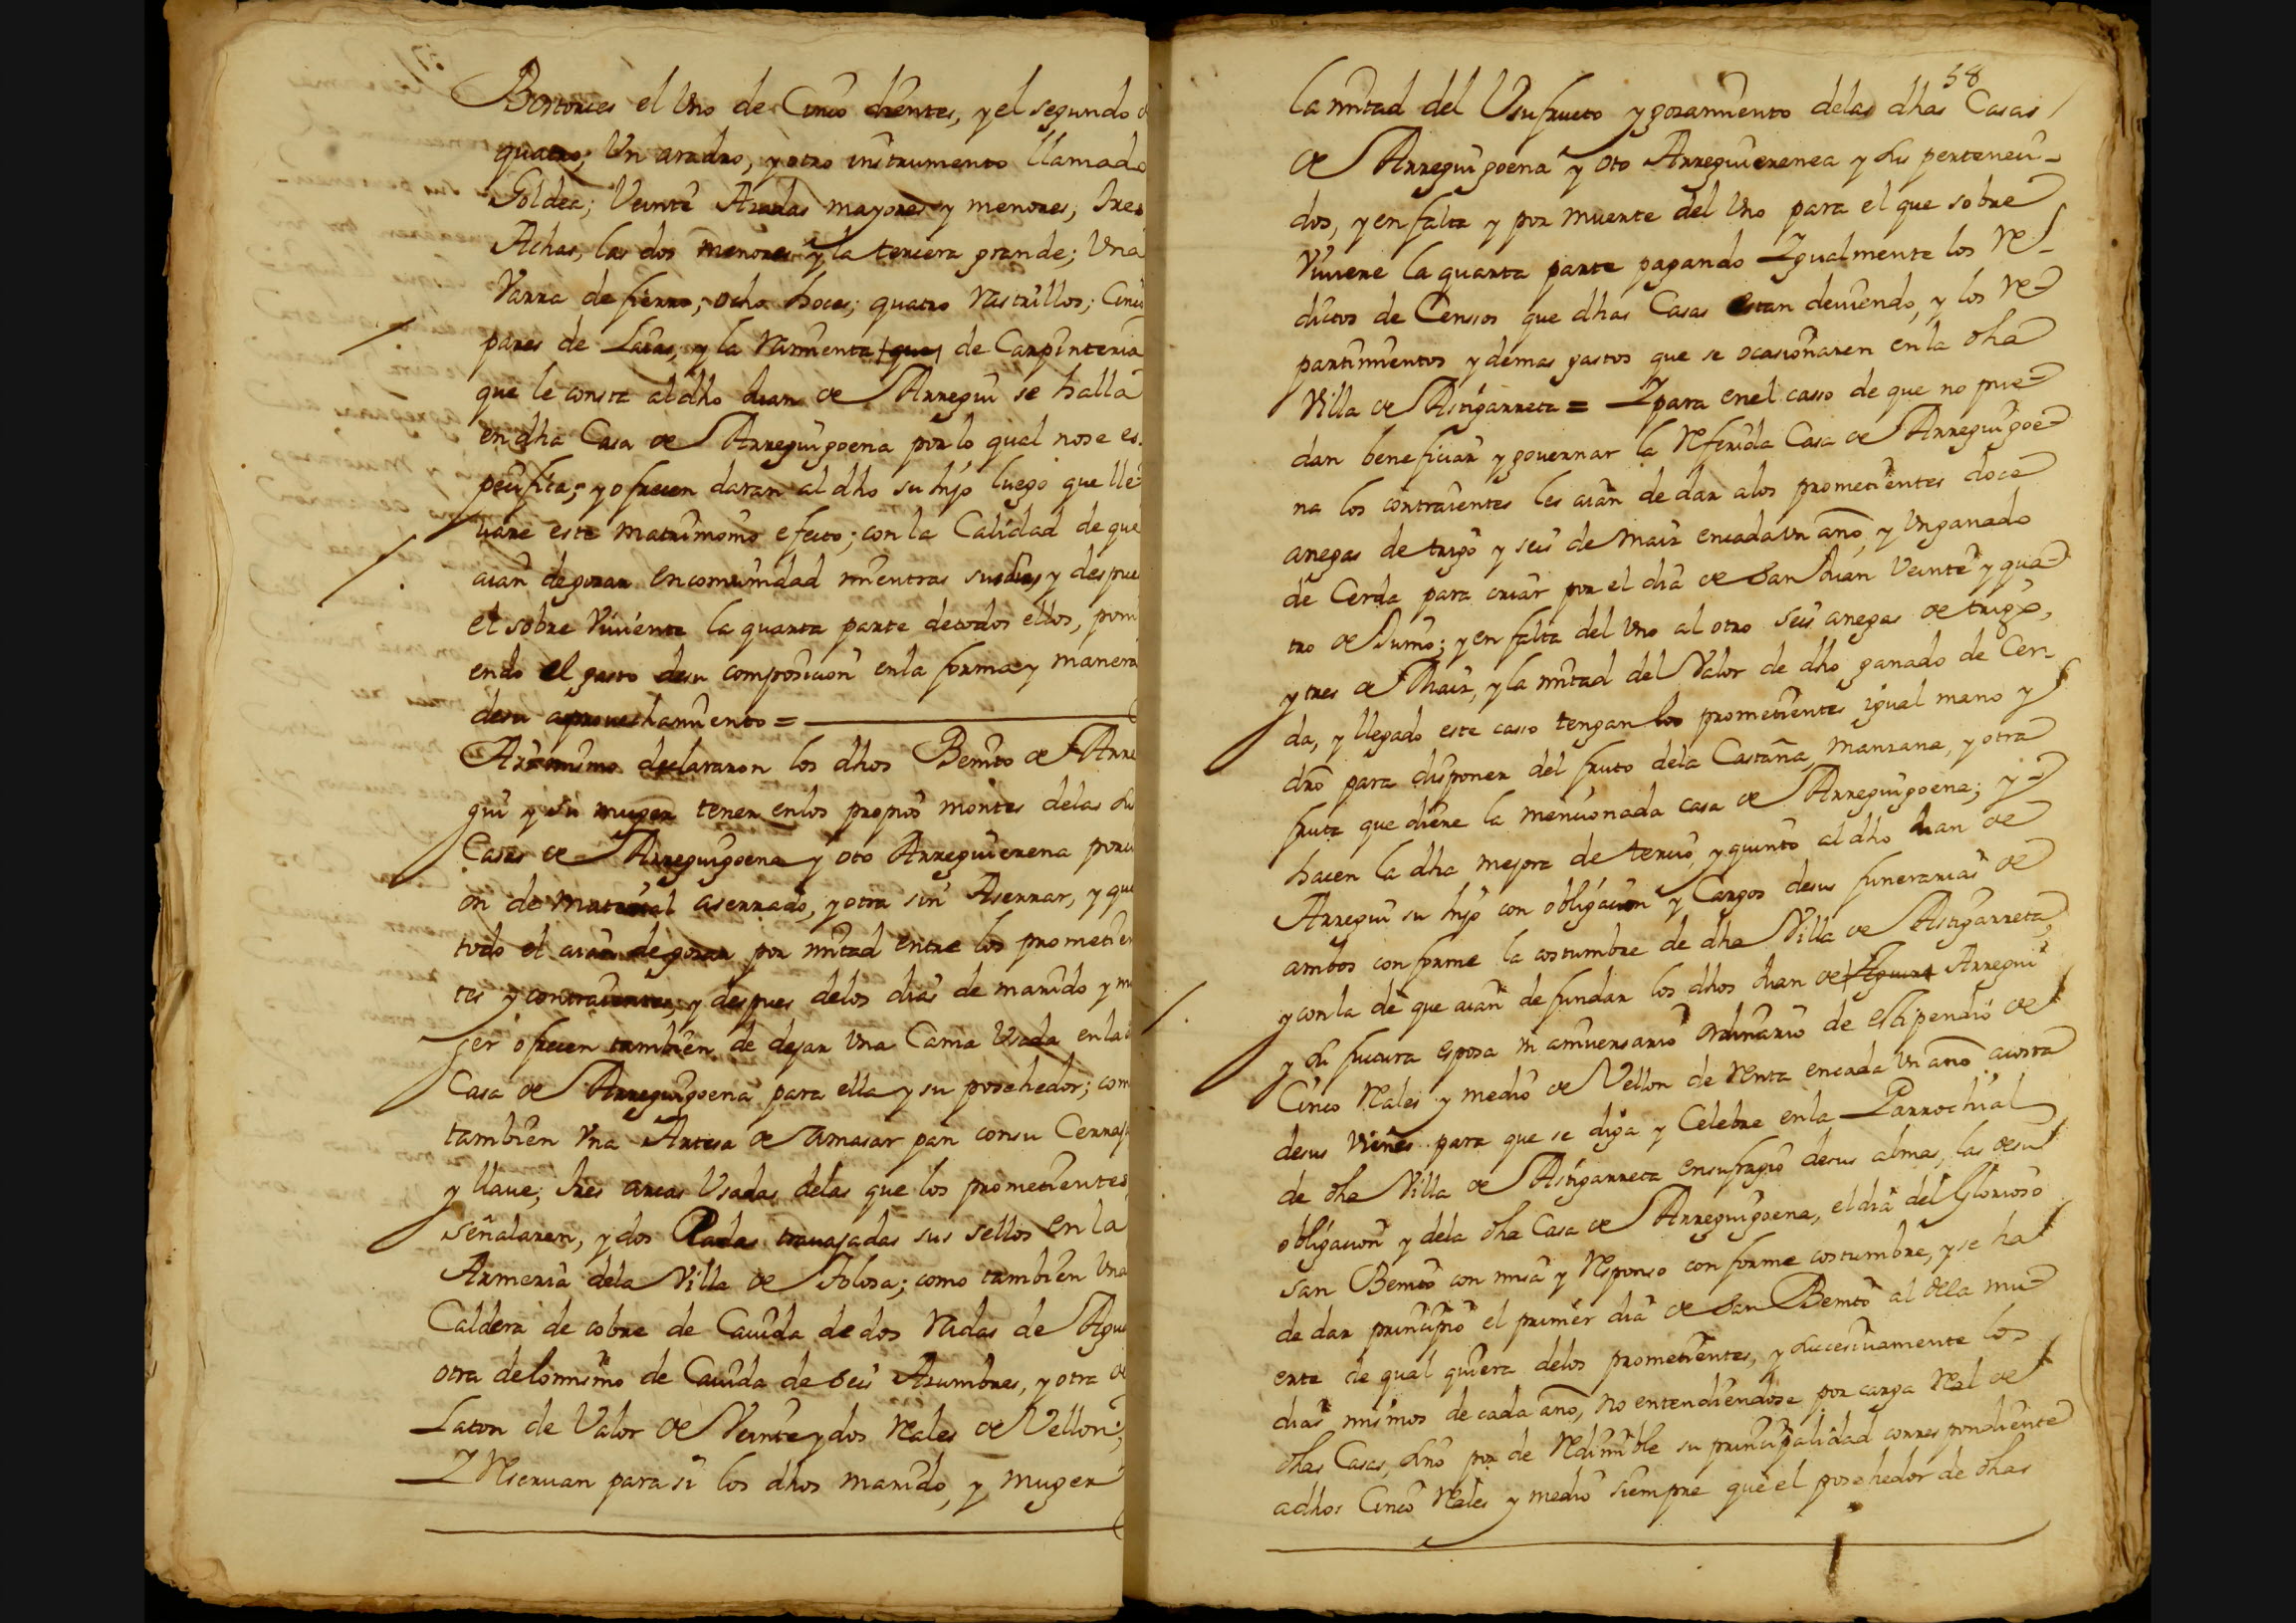 Bortorces el Uno de Cinco dientes, y el segundo de
quatro; Un aradro, y otro instrumento llamado
Goldea; Veinte Azadas mayores y menores; tres
Achas, las dos menores y la tercera grande; Una
Varra de fierro; ocho hoces; quatro rastrillos; Cinco
pares de Laias, y la rarmienta que de Carpinteria
que le consta al dho Juan de Arregui se halla
en dha Casa de Arreguigoena por lo qual no se es
pecifica; y ofrecen daran al dho su hijo luego que lle
uare este matrimonio efecto; con la Calidad de que
aian de gozar en comunidad mientras sus dias y despue
el sobre Viuiente la quarta parte de todos ellos, poni
endo el gasto de su composicion en la forma y manera
de su aprouechamiento =
Asimismo declararon los dhos Benito de Arre
gui y su muger tener en los propios montes de las
Casas de Arreguigoena y oto Arreguierena porci
on de material aserrado, y otra sin Aserrar, y que
todo el aian de gozar por mitad entre los prometien
tes y contraientes, y despues de los dias de marido y mu
ger ofrecen tambien de dejar Una Cama Usada en la
Casa de Arreguigoena para ella y su posehedor; com
tambien Vna Artesa de amasar pan con su Cerraja
y llaue; tres arcas Usadas de las que los prometientes
señalaren, y dos trauajadas sus sellos en la
Armeria de la Villa de Tolosa; como tambien Una
Caldera de cobre de Cauida de dos radas de Agua
otra de lo mismo de Cauida de seis Azumbres, y otra de
Laton de Valor de Veinte y dos reales de Vellon;
Y reseruan para si los dhos marido, y muger
58
la mitad del Usufructo y gozamiento de las dhas Casas
de Arreguigoena y oto Arreguierenea y sus perteneci-
dos, y en falta y por muerte del Uno para el que sobre
Viuiere la quarta parte pagando Igualmente los re-
ditos de Censos que dhas Casas estan deuiendo, y los re
partimientos y demas gastos que se ocasionaren en la dha
Villa de Astigarreta = Y para en el casso de que no pue
dan beneficiar y gouernar la referida Casa de Arreguigoe
na los contraientes les aian de dar a los prometientes doce
anegas de trigo y seis de maiz en cada un año, y Un ganado
de Cerda para criar por el dia de San Juan Veinte y qua
tro de Junio; y en falta del Uno al otro seis anegas de trigo,
y tres de Maiz, y la mitad del Valor de dho ganado de Cer-
da, y llegado este casso tengan los prometientes igual mano y
dro para disponer del fruto de la Castaña, manzana, y otra
fruta que diere la mencionada casa de Arreguigoena; y
hacen la dha mejora de tercio, y quinto al dho Juan de
Arregui su hijo con obligacion y Cargos de sus funerarias de
ambos conforme la costumbre de dha Villa de Astigarreta,
y con la de que aian de fundar los dhos Juan de Aguirre Arregui
y su futura esposa un aniuersario ordinario de estipendio de
Cinco reales y medio de Vellon de renta en cada Un año acosta
de sus vienes para que se diga y Celebre en la Parrochial
de dha Villa de Astigarreta en sufragio de sus almas, las de su
obligacion y de la dha Casa de Arreguigoena, el dia del Glorioso
san Benito con misa y responso conforme costumbre, y se ha
de dar principio el primer dia de san Benito al de la mu
erte de qual quiera de los prometientes, y sucesiuamente los
dias mismos de cada año, no entendiendose por carga real de
dhas Casas, sino por de redimible su principalidad correspondiente
a dhos Cinco reales y medio siempre que el posehedor de dhas